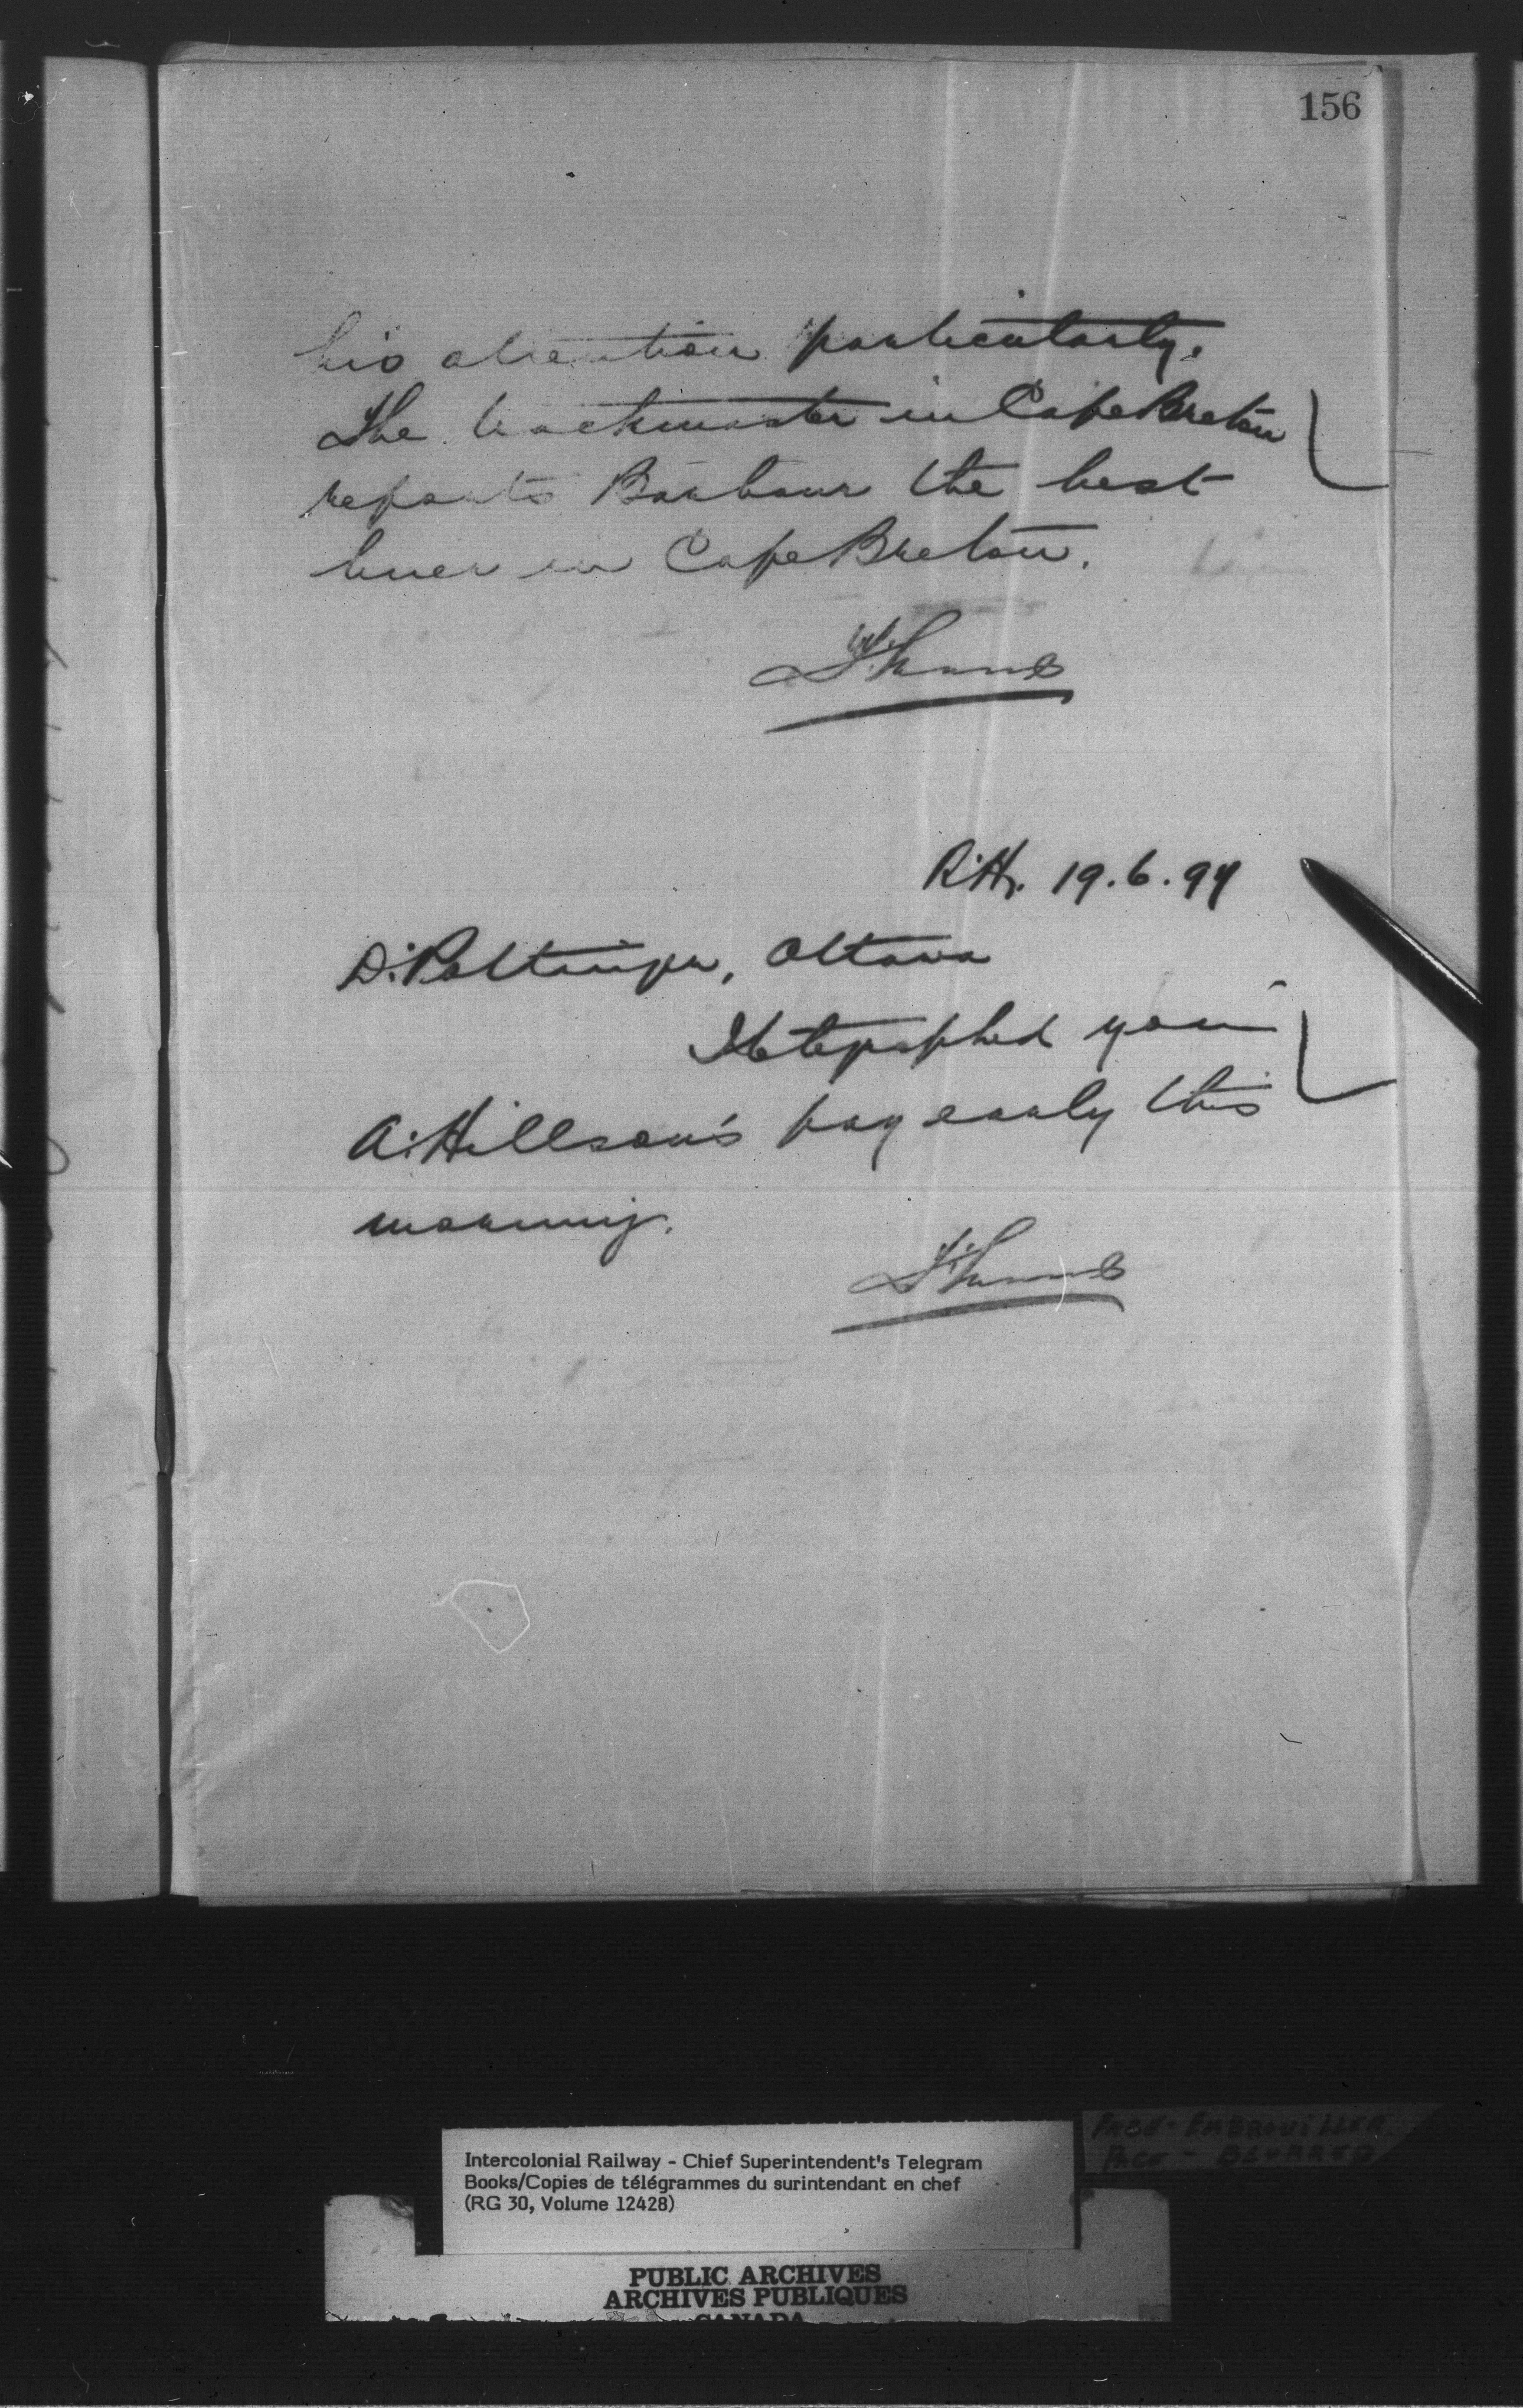 156
his attention particularly.
The trackmaster in Cape Breton
reports Barbour the best
in Cape Breton.
R.H. 19.6.94
D. Pottinger, Ottawa
I telegraphed you
A. Hillson's pay early this
morning.
Intercolonial Railway - Chief Superintendent's Telegram
Books/Copies de télégrammes du surintendant en chef
(RG 30, Volume 12428)
PAGE - EMBROUILLER.
PAGE - BLURRED
PUBLIC ARCHIVES
ARCHIVES PUBLIQUES
CANADA